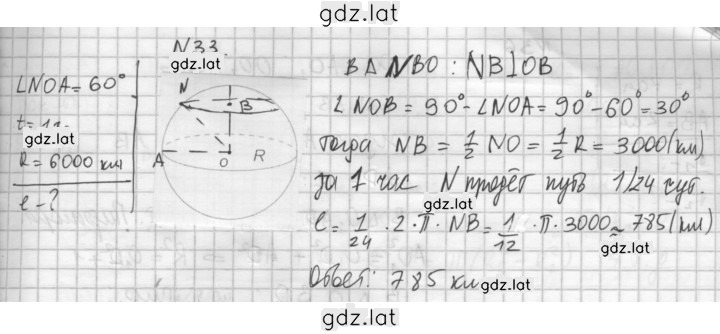 gdz.lat
N33.
gdz.lat
∠NOA = 60°
t = 1 ч.
gdz.lat
R = 6000 км
l - ?
N
B
A
O
R
В Δ NBO : NB⊥OB
∠NOB = 90° - ∠NOA = 90° - 60° = 30°
тогда NB = 1/2 NO = 1/2 R = 3000 (км)
за 1 час N пройдёт путь 1/24 сут.
l = 1/24 · 2 · π · NB = 1/12 · π · 3000 ≈ 785 (км)
gdz.lat
Ответ: 785 км
gdz.lat
gdz.lat